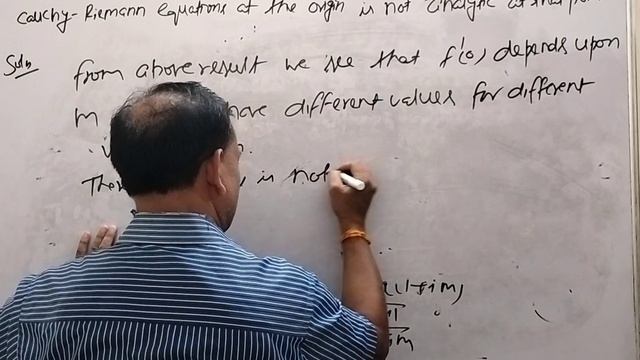 Cauchy-Riemann equations at the origin is not analytic at that
Soln
from above result we see that f'(0) depends upon
m different values for different
is not